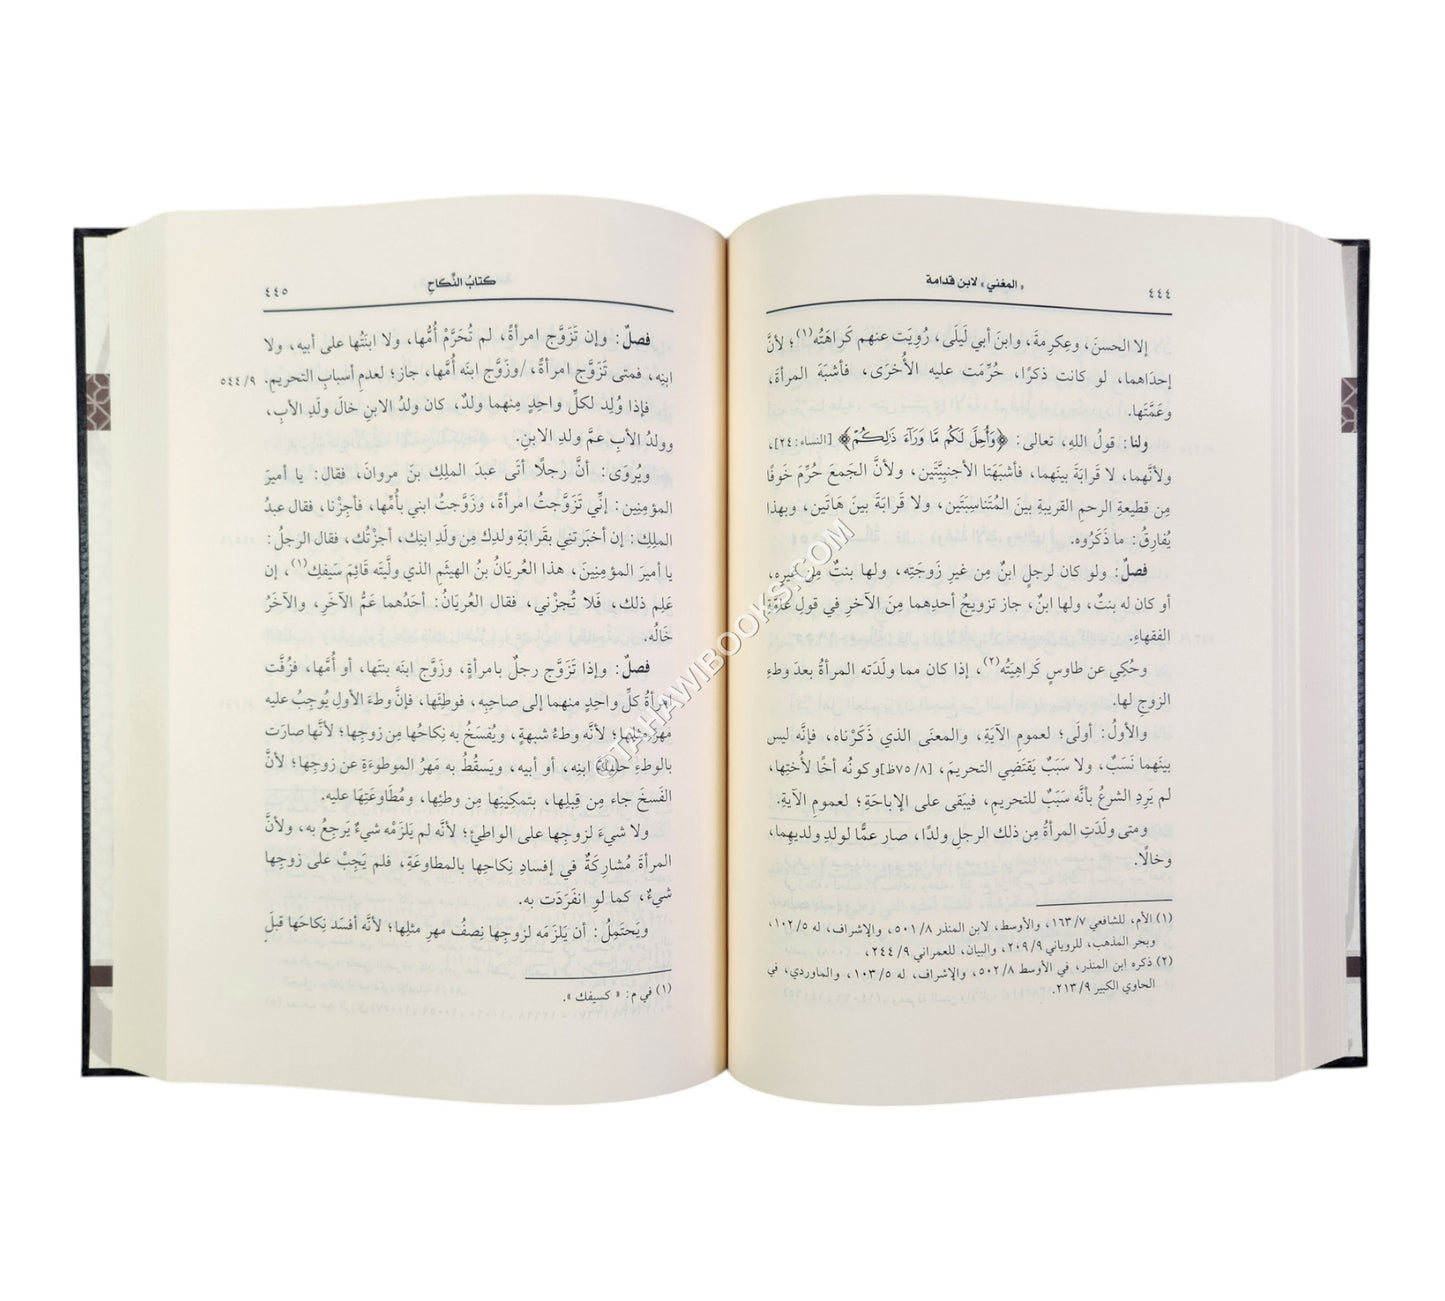 ٤٤٤
« المغني » لابن قدامة
إلا الحسنَ، وعِكرِمةَ، وابنَ أبي لَيلَى، رُوِيَت عنهم كَراهَتُه(١)؛ لأنَّ
إحدَاهما، لو كانت ذكرًا، حُرِّمَت عليه الأُخرَى، فأشبَهَ المرأةَ،
وعَمَّتَها.
ولنا: قولُ اللهِ، تعالى: ﴿وَأُحِلَّ لَكُم مَّا وَرَآءَ ذَٰلِكُمْ﴾ [النساء:٢٤]،
ولأنَّهما، لا قرابَةَ بينَهما، فأشبَهَتا الأجنبِيَّتَين، ولأنَّ الجَمعَ حُرِّمَ خَوفًا
مِن قطيعةِ الرحمِ القريبةِ بينَ المُتَناسِبَتَين، ولا قرابَةَ بينَ هاتَين، وبهذا
يُفارِقُ: ما ذَكَرُوه.
فصلٌ: ولو كان لرجلٍ ابنٌ مِن غيرِ زَوجَتِه، ولها بنتٌ مِن غيرِه،
أو كان له بنتٌ، ولها ابنٌ، جاز تزويجُ أحدِهما مِنَ الآخرِ في قولِ عامَّةِ
الفقهاءِ.
وحُكِي عن طاوسٍ كَراهِيَتُه(٢)، إذا كان مما ولَدَته المرأةُ بعدَ وطءِ
الزوجِ لها.
والأولُ: أولَى؛ لعمومِ الآيَةِ، والمعنَى الذي ذَكَرْناه، فإنَّه ليس
بينَهما نَسَبٌ، ولا سَبَبٌ يَقتَضِي التحريمَ، [٧٥/٨ظ]وكونُه أخًا لأُختِها،
لم يَرِدِ الشرعُ بأنَّه سَبَبٌ للتحريمِ، فيَبقَى على الإباحَةِ؛ لعمومِ الآيةِ.
ومتى ولَدَتِ المرأةُ مِن ذلك الرجلِ ولدًا، صار عمًّا لولدِ ولديهِما،
وخالًا.
(١) الأم، للشافعي ١٦٣/٧، والأوسط، لابن المنذر ٥٠١/٨، والإشراف، له ١٠٢/٥،
وبحر المذهب، للروياني ٢٠٩/٩، والبيان، للعمراني ٢٤٤/٩.
(٢) ذكره ابن المنذر، في الأوسط ٥٠٢/٨، والإشراف، له ١٠٣/٥، والماوردي، في
الحاوي الكبير ٢١٣/٩.
كتابُ النِّكاحِ
٤٤٥
فصلٌ: وإن تَزَوَّج امرأةً، لم تُحَرَّمْ أُمُّها، ولا ابنَتُها على أبيه، ولا
ابنِه، فمتى تَزَوَّج امرأةً، /وزَوَّج ابنَه أُمَّها، جاز؛ لعدمِ أسبابِ التحريمِ.
٥٤٤/٩
فإذا وُلِد لكلِّ واحِدٍ مِنهما ولدٌ، كان ولدُ الابنِ خالَ ولَدِ الأبِ،
وولدُ الأبِ عمَّ ولدِ الابنِ.
ويُروَى: أنَّ رجلًا أتَى عبدَ الملِكِ بنَ مروانَ، فقال: يا أميرَ
المؤمِنِين: إنِّي تَزَوَّجتُ امرأةً، وزَوَّجتُ ابني بأُمِّها، فأجِزْنا، فقال عبدُ
الملِكِ: إن أخبَرتَني بقَرابَةِ ولدِك مِن ولَدِ ابنِك، أجزْتُك، فقال الرجلُ:
يا أميرَ المؤمِنِينَ، هذا العُريَانُ بنُ الهيثَمِ الذي ولَّيتَه قائِمَ سَيفِك(١)، إن
عَلِم ذلك، فَلا تُجزْني، فقال العُريَانُ: أحدُهما عَمُّ الآخَرِ، والآخَرُ
خَالُه.
فصلٌ: وإذا تَزَوَّج رجلٌ بامرأةٍ، وزَوَّج ابنَه بنتَها، أو أُمَّها، فزُفَّت
امرأةُ كلِّ واحِدٍ منهما إلى صاحِبِه، فوطِئَها، فإنَّ وطءَ الأولِ يُوجِبُ عليه
مهرَ مثلِها؛ لأنَّه وطءُ شبهةٍ، ويُفسَخُ به نِكاحُها مِن زوجِها؛ لأنَّها صارَت
بالوطءِ حليلةَ ابنِه، أو أبيه، ويَسقُطُ به مَهرُ الموطوءَةِ عن زوجِها؛ لأنَّ
الفَسخَ جاء مِن قِبلِها، بتمكِينِها مِن وطئِها، ومُطاوعَتِهَا عليه.
ولا شيءَ لزوجِها على الواطِئِ؛ لأنَّه لم يَلزَمْه شيءٌ يَرجِعُ به، ولأنَّ
المرأةَ مُشارِكَةٌ في إفسادِ نِكاحِها بالمطاوعَةِ، فلم يَجِبْ على زوجِها
شيءٌ، كما لوِ انفَرَدَت به.
ويَحتَمِلُ: أن يَلزَمَه لزوجِها نِصفُ مهرِ مثلِها؛ لأنَّه أفسَد نِكاحَها قبلَ
(١) في م: « كسيفك ».
©TAHAWIBOOKS.COM